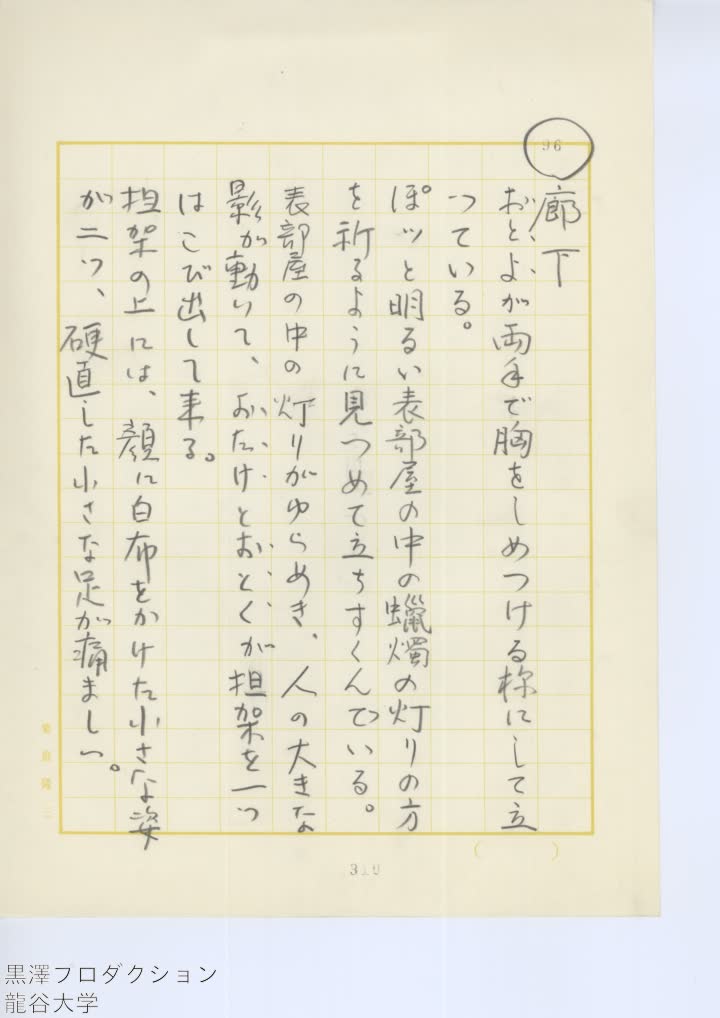 96
廊下
おとよが両手で胸をしめつける様にして立
っている。
ぽッと明るい表部屋の中の蠟燭の灯りの方
を祈るように見つめて立ちすくんでいる。
表部屋の中の灯りがゆらめき、人の大きな
影が動いて、おたけとおとくが担架を一つ
はこび出して来る。
担架の上には、顔に白布をかけた小さな姿
が二ツ、硬直した小さな足が痛ましい。
菊島隆三
310
黒澤プロダクション
龍谷大学